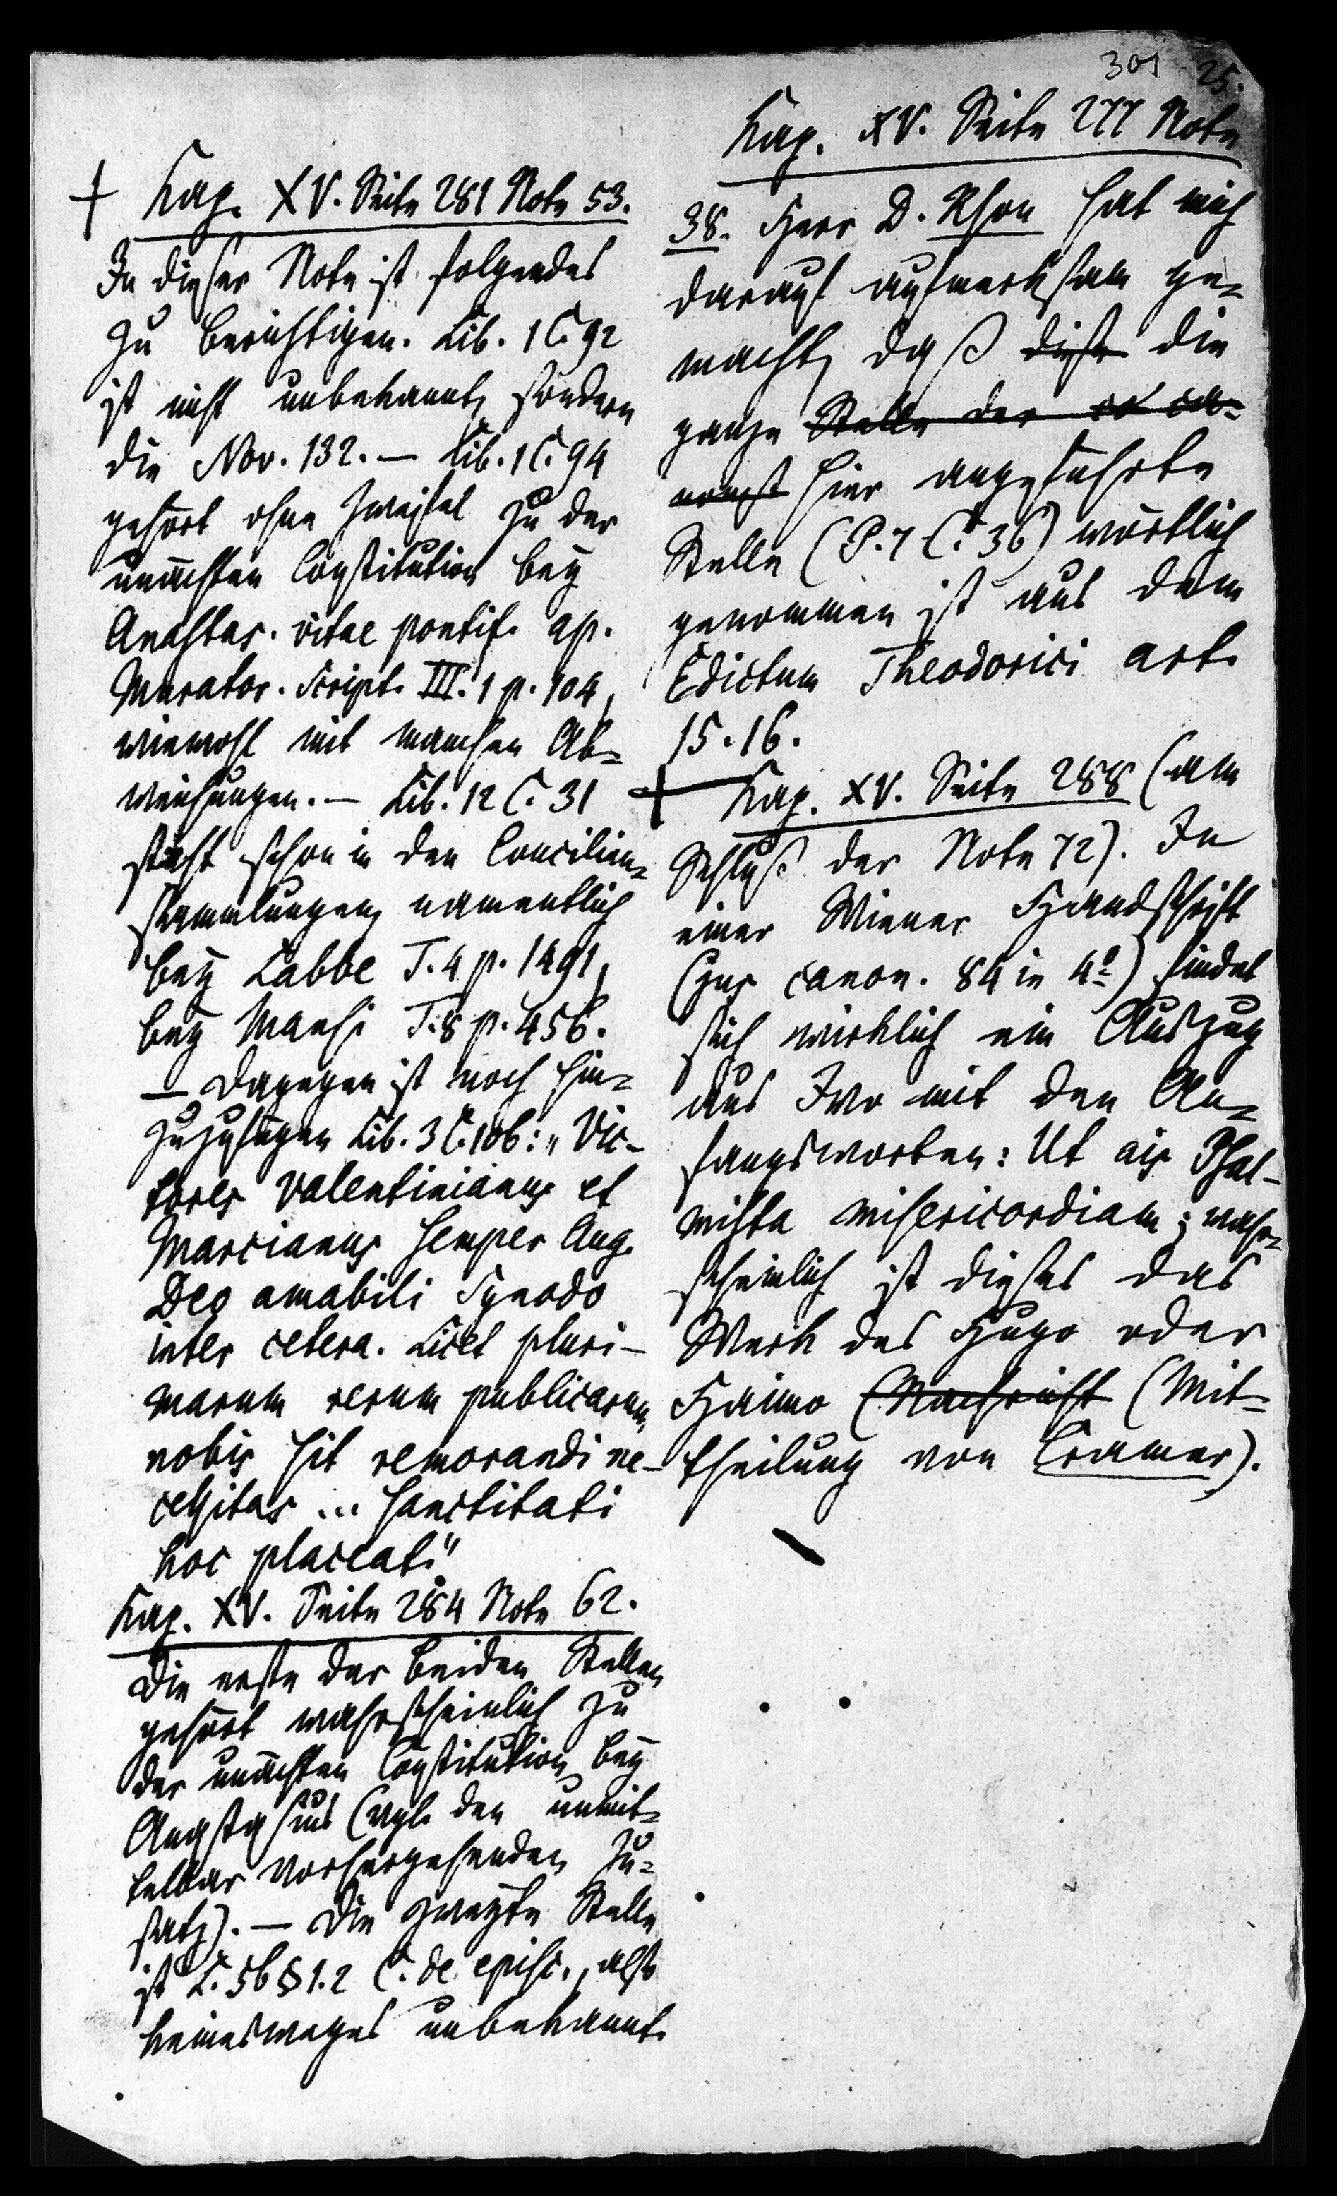 301 25.
Kap. XV. Seite 277 Note
38. Herr D. Rhon hat mich
darauf aufmerksam ge-
macht, daß diese die
ganze Stelle der
hier angeführte
Stelle (P. 7 C. 36) wörtlich
genommen ist aus dem
Edictum Theodorici art.
15. 16.
+ Kap. XV. Seite 288 (am
Schluß der Note 72). In
einer Wiener Handschrift
(jus canon. 84 in 4º) findet
sich wirklich ein Auszug
aus Ivo mit den An-
fangsworten: Ut ais Psal-
mista misericordiam; wahr-
scheinlich ist dieses das
Werk des Hugo oder
Haimo (Nachricht (Mit-
theilung von Cramer).
+ Kap. XV. Seite 281 Note 53.
In dieser Note ist folgendes
zu berichtigen. Lib. 1 C. 92
ist nicht unbekannt, sondern
die Nov. 132. — Lib. 1 C. 94
gehört ohne Zweifel zu der
unächten Constitution bey
Anastas. vitae pontif. ap.
Murator. Script. III. 1 p. 104,
wiewohl mit manchen Ab-
weichungen. — Lib. 12 C. 31
steht schon in den Concilien-
sammlungen, namentlich
bey Labbe T. 4 p. 1491,
bey Mansi T. 8 p. 456.
— Dagegen ist noch hin-
zuzufügen Lib. 3 C. 106: „Vic-
tores Valentinianus et
Marcianus semper Aug.
Deo amabili Synodo
inter cetera. Licet pluri-
marum rerum publicarum
nobis sit remorandi ne-
cessitas ... sanctitati
hoc placeat."
Kap. XV. Seite 284 Note 62.
Die erste der beiden Stellen
gehört wahrscheinlich zu
der unächten Constitution bey
Anastasius (vgl. den unmit-
telbar vorhergehenden Zu-
satz). — Die zweyte Stelle
ist L. 56 § 1. 2 C. de episc., also
keinesweges unbekannt.